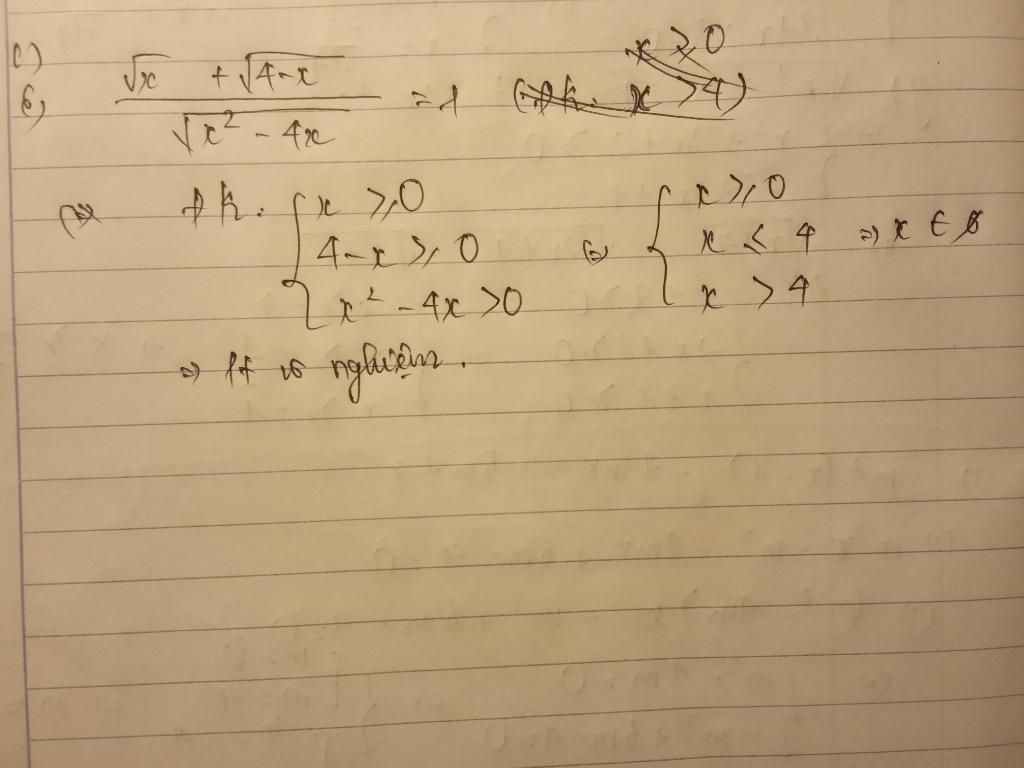 c)
6,
(√x + √(4-x)) / √(x² - 4x) = 1 (đk: x > 4) x ≥ 0
⇔ đk: { x ≥ 0 ; 4-x ≥ 0 ; x² - 4x > 0 ⇔ { x ≥ 0 ; x < 4 ; x > 4 ⇒ x ∈ ∅
⇒ Pt vô nghiệm.